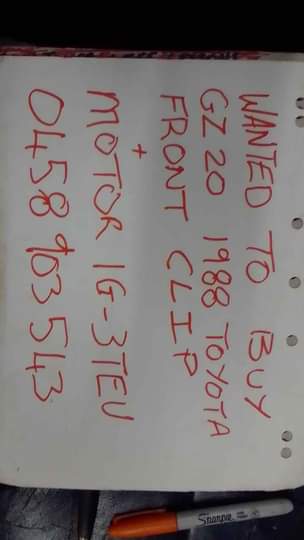 WANTED TO BUY
GZ20 1988 TOYOTA
FRONT CLIP
+
MOTOR 1G-3TEU
0458 903 543
Sharpie